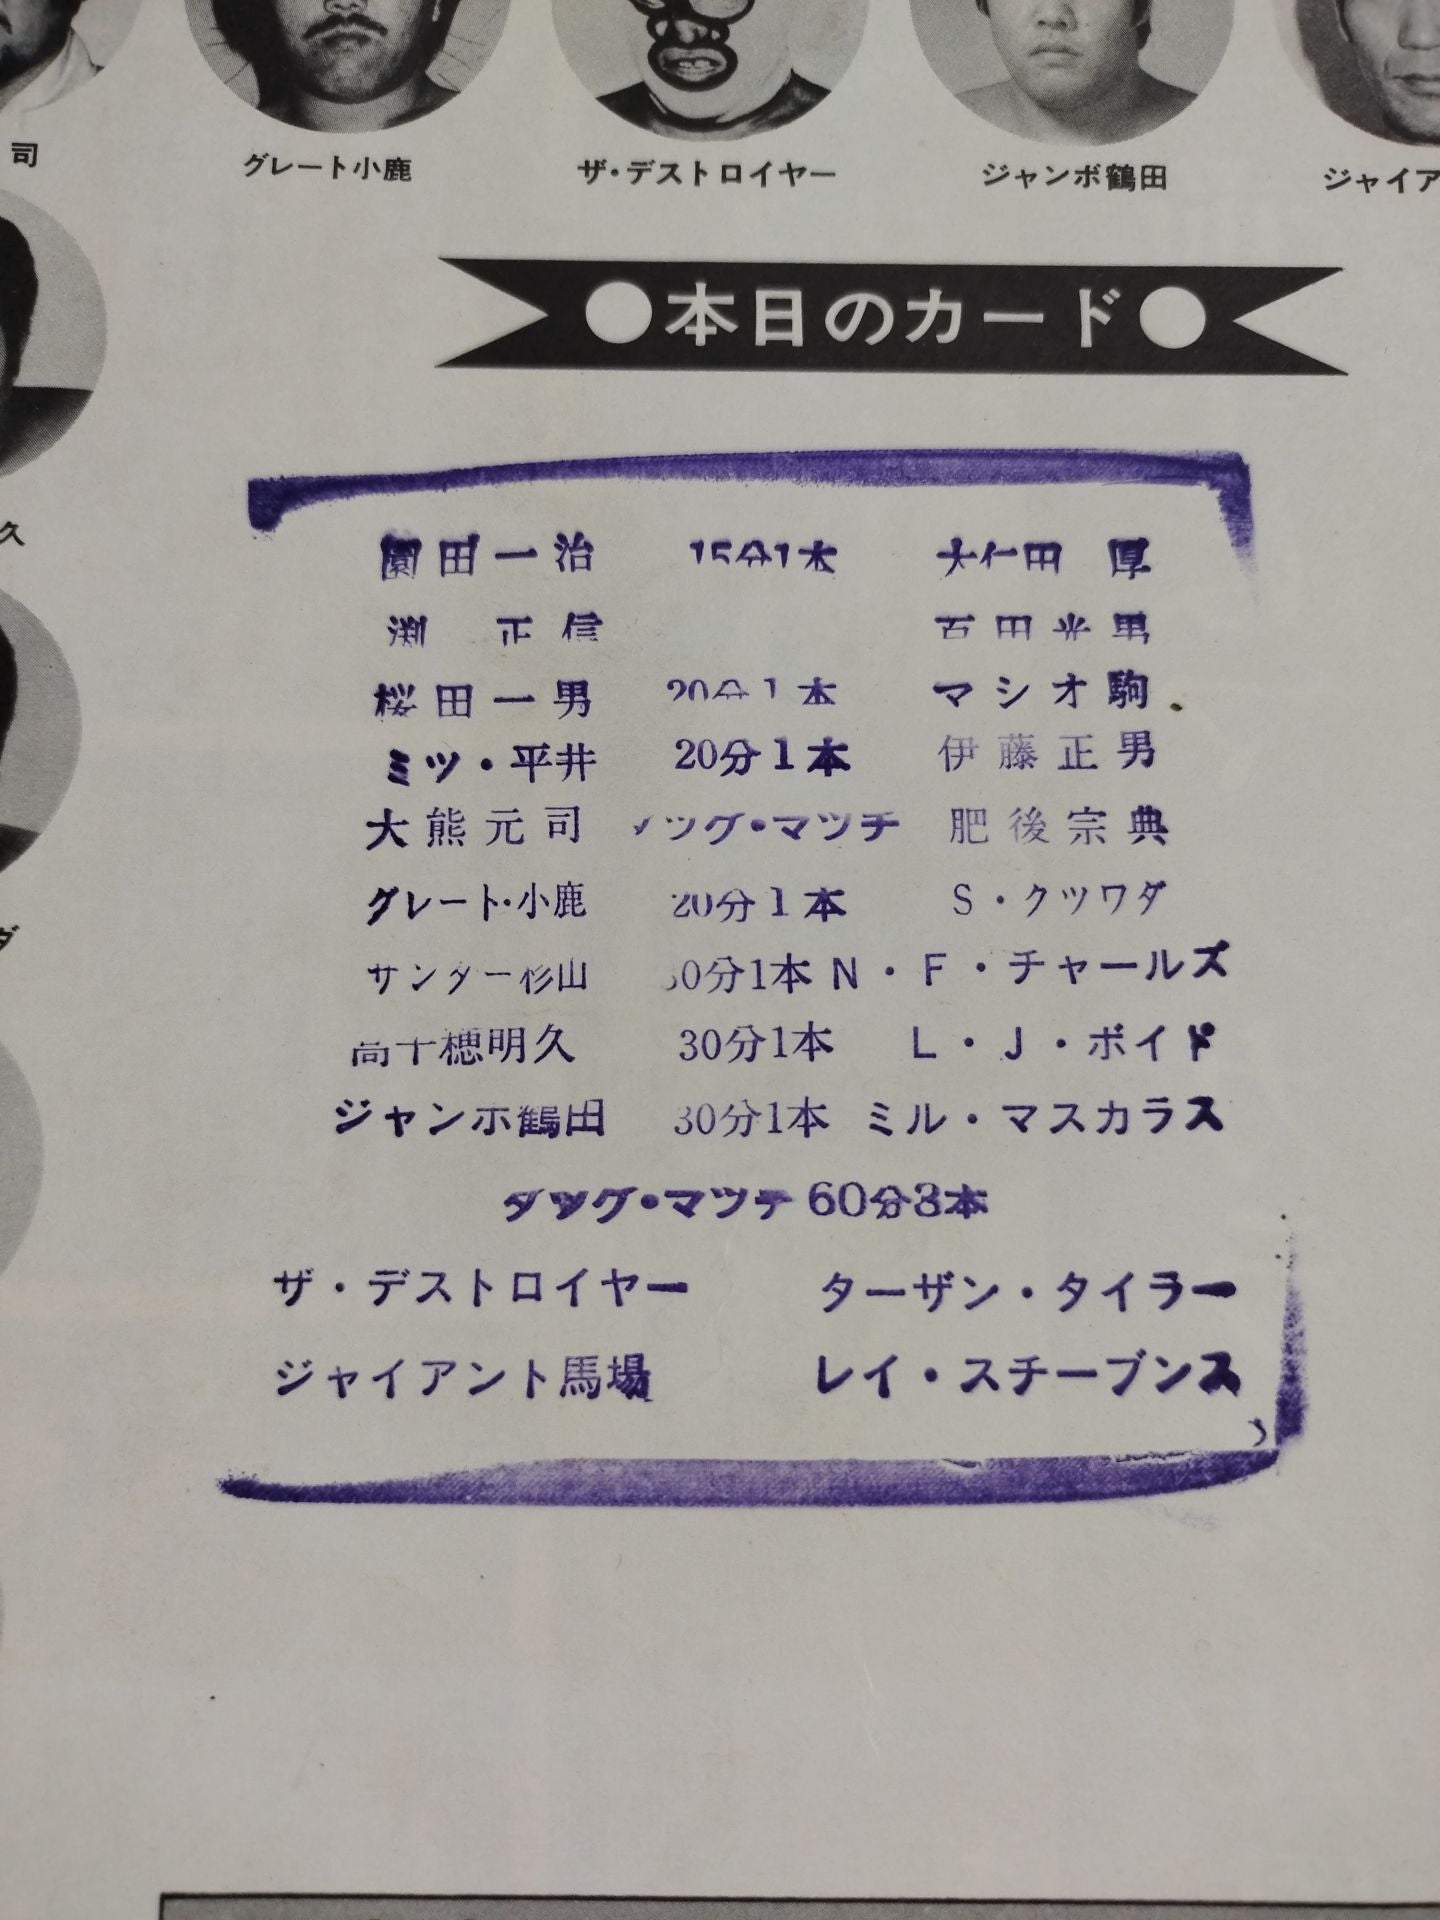 司 グレート小鹿 ザ・デストロイヤー ジャンボ鶴田 ジャイア
●本日のカード●
久
ダ
薗田一治 15分1本 大仁田 厚
渕 正信 百田光男
桜田一男 20分1本 マシオ駒
ミツ・平井 20分1本 伊藤正男
大熊元司 タツグ・マツチ 肥後宗典
グレート・小鹿 20分1本 S・クツワダ
サンダー杉山 30分1本 N・F・チャールズ
高千穂明久 30分1本 L・J・ボイド
ジャンボ鶴田 30分1本 ミル・マスカラス
タツグ・マツチ 60分3本
ザ・デストロイヤー ターザン・タイラー
ジャイアント馬場 レイ・スチーブンス